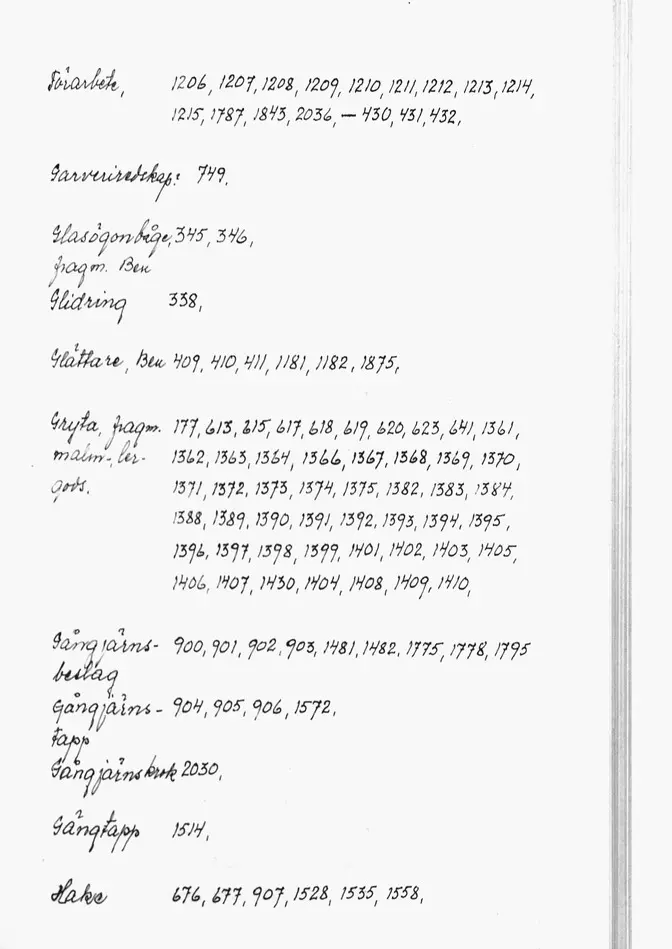 Förarbete, 1206, 1207, 1208, 1209, 1210, 1211, 1212, 1213, 1214,
1215, 1787, 1843, 2036, — 430, 431, 432,
Garveriredskap: 749.
Glasögonbåge, 345, 346,
fragm. Ben
Glidring 338,
Glättare, Ben 409, 410, 411, 1181, 1182, 1875,
Gryta, fragm. 177, 613, 615, 617, 618, 619, 620, 623, 641, 1361,
malm-, ler- 1362, 1363, 1364, 1366, 1367, 1368, 1369, 1370,
gods. 1371, 1372, 1373, 1374, 1375, 1382, 1383, 1384,
1388, 1389, 1390, 1391, 1392, 1393, 1394, 1395,
1396, 1397, 1398, 1399, 1401, 1402, 1403, 1405,
1406, 1407, 1430, 1404, 1408, 1409, 1410,
Gångjärns- 900, 901, 902, 903, 1481, 1482, 1775, 1778, 1795
beslag
Gångjärns- 904, 905, 906, 1572,
tapp
Gångjärnskrok 2030,
Gångtapp 1514,
Hake 676, 677, 907, 1528, 1535, 1558,